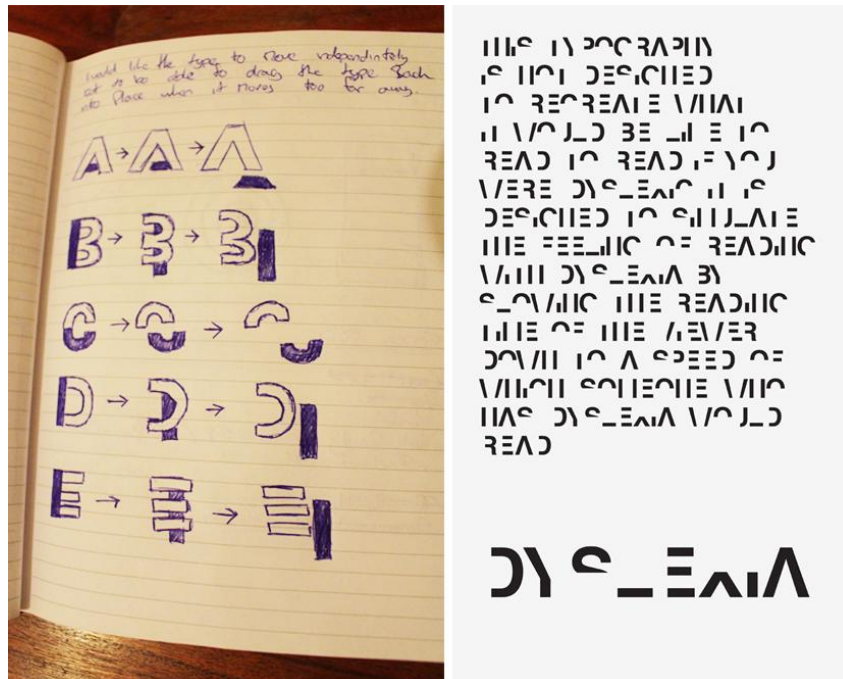 I would like the type to move independintely
but to be able to drag the type back
into Place when it moves too far away.
A → A → A
B → B → B
C → C → C
D → D → D
E → E → E
THIS TYPOGRAPHY
IS NOT DESIGNED
TO RECREATE WHAT
IT WOULD BE LIKE TO
READ TO READ IF YOU
WERE DYSLEXIC IT IS
DESIGNED TO SIMULATE
THE FEELING OF READING
WITH DYSLEXIA BY
SLOWING THE READING
TIME OF THE VIEWER
DOWN TO A SPEED OF
WHICH SOMEONE WHO
HAS DYSLEXIA WOULD
READ
DYSLEXIA